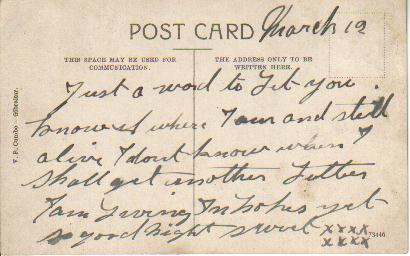 POST CARD
March 12
THIS SPACE MAY BE USED FOR
COMMUNICATION.
THE ADDRESS ONLY TO BE
WRITTEN HERE.
V. B. Cumbo - Gibraltar.
Just a word to Let you
know where I am and still
alive I dont know when I
Shall get another Letter
I am Living In hopes yet
so good night sweet xxxx
xxxx
73446